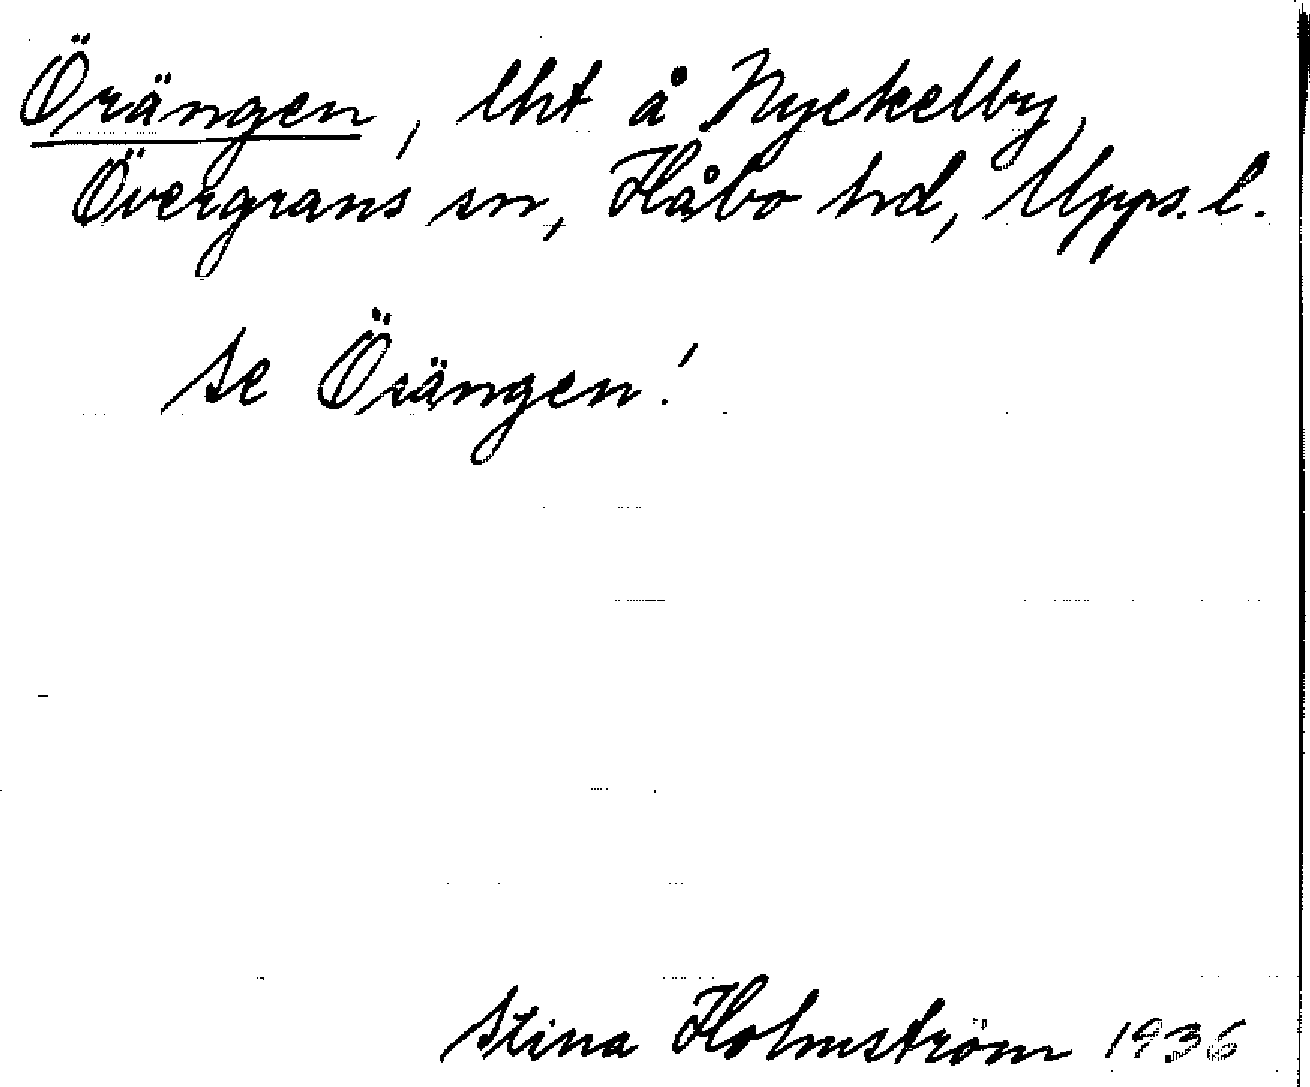 Örängen, lht å Nyckelby,
Övergrans sn, Håbo hd, Upps. l.
se Örängen!
Stina Holmström 1936